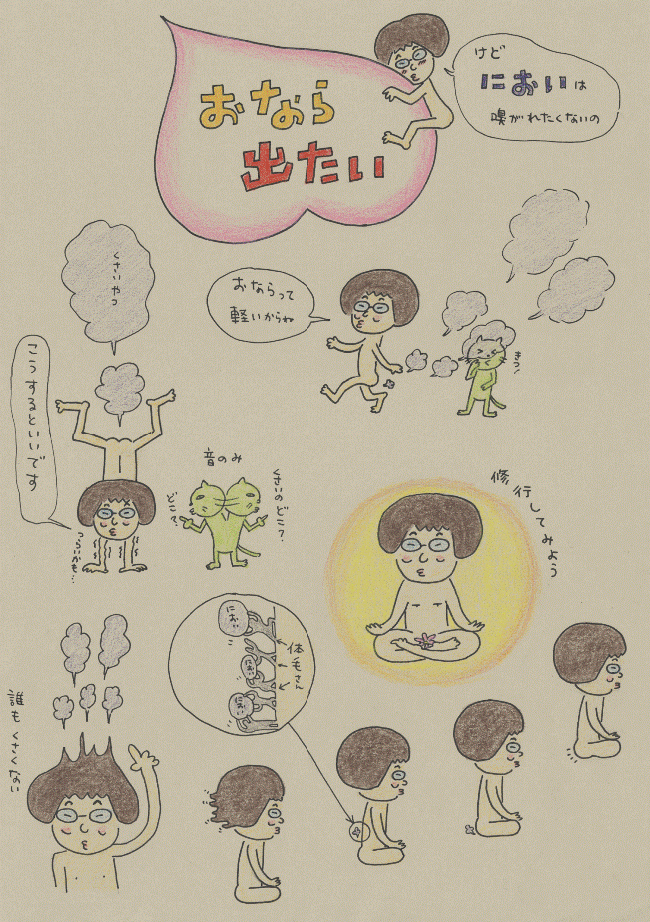 おなら
出たい
けど
においは
嗅がれたくないの
くさいやつ
おならって
軽いからね
きつ!
こうするといいです
つらいかも…
音のみ
どこ?
くさいのどこ?
修行してみよう
におい
におい
におい
体毛さん
誰もくさくない